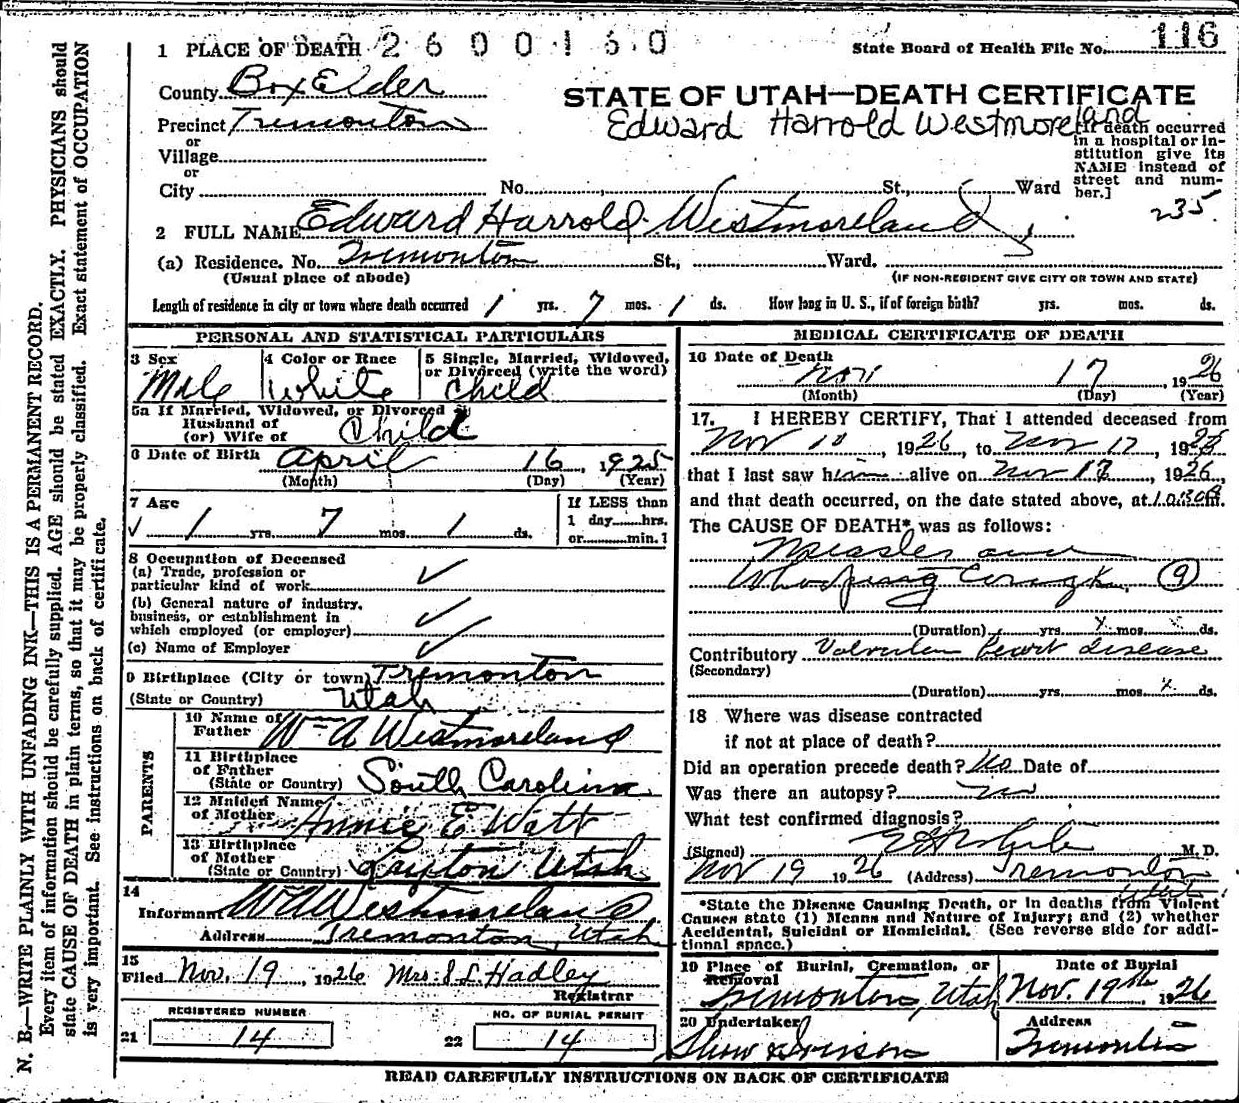 1 PLACE OF DEATH 2600160
State Board of Health File No. 116
County Box Elder
STATE OF UTAH—DEATH CERTIFICATE
Precinct Tremonton
Edward Harrold Westmoreland
or
Village
or
City No. St., Ward
[If death occurred
in a hospital or in-
stitution give its
NAME instead of
street and num-
ber.]
235
2 FULL NAME Edward Harrold Westmoreland
(a) Residence. No. Tremonton St., Ward.
(Usual place of abode) (IF NON-RESIDENT GIVE CITY OR TOWN AND STATE)
Length of residence in city or town where death occurred 1 yrs. 7 mos. 1 ds. How long in U. S., if of foreign birth? yrs. mos. ds.
PERSONAL AND STATISTICAL PARTICULARS
3 Sex 4 Color or Race 5 Single, Married, Widowed,
or Divorced (write the word)
Male White Child
5a If Married, Widowed, or Divorced
Husband of
(or) Wife of Child
6 Date of Birth April 16, 1925
(Month) (Day) (Year)
7 Age
1 yrs. 7 mos. 1 ds.
If LESS than
1 day hrs.
or min.?
8 Occupation of Deceased
(a) Trade, profession or
particular kind of work ✓
(b) General nature of industry,
business, or establishment in
which employed (or employer) ✓
(c) Name of Employer ✓
9 Birthplace (City or town) Tremonton
(State or Country) Utah
PARENTS
10 Name of
Father Wm A Westmoreland
11 Birthplace
of Father
(State or Country) South Carolina
12 Maiden Name
of Mother Annie E Watt
13 Birthplace
of Mother
(State or Country) Layton Utah
14
Informant Wm A Westmoreland
Address Tremonton, Utah
15
Filed Nov. 19, 1926 Mrs. S. L. Hadley
Registrar
REGISTERED NUMBER NO. OF BURIAL PERMIT
21 14 22 14
MEDICAL CERTIFICATE OF DEATH
16 Date of Death
Nov 17, 1926
(Month) (Day) (Year)
17. I HEREBY CERTIFY, That I attended deceased from
Nov 10, 1926, to Nov 17, 1926
that I last saw him alive on Nov 17, 1926,
and that death occurred, on the date stated above, at m.
The CAUSE OF DEATH* was as follows:
Measles and
Whooping Cough. 9
(Duration) yrs. x mos. x ds.
Contributory Valvular heart disease
(Secondary)
(Duration) yrs. mos. x ds.
18 Where was disease contracted
if not at place of death?
Did an operation precede death? No Date of
Was there an autopsy? no
What test confirmed diagnosis?
(Signed) M. D.
Nov 19 1926 (Address) Tremonton
Utah
*State the Disease Causing Death, or in deaths from Violent
Causes state (1) Means and Nature of Injury; and (2) whether
Accidental, Suicidal or Homicidal. (See reverse side for addi-
tional space.)
19 Place of Burial, Cremation, or
Removal
Tremonton, Utah
Date of Burial
Nov. 19th, 1926
20 Undertaker
Address
Tremonton
READ CAREFULLY INSTRUCTIONS ON BACK OF CERTIFICATE
N. B.—WRITE PLAINLY WITH UNFADING INK—THIS IS A PERMANENT RECORD.
Every item of information should be carefully supplied. AGE should be stated EXACTLY. PHYSICIANS should
state CAUSE OF DEATH in plain terms, so that it may be properly classified. Exact statement of OCCUPATION
is very important. See instructions on back of certificate.